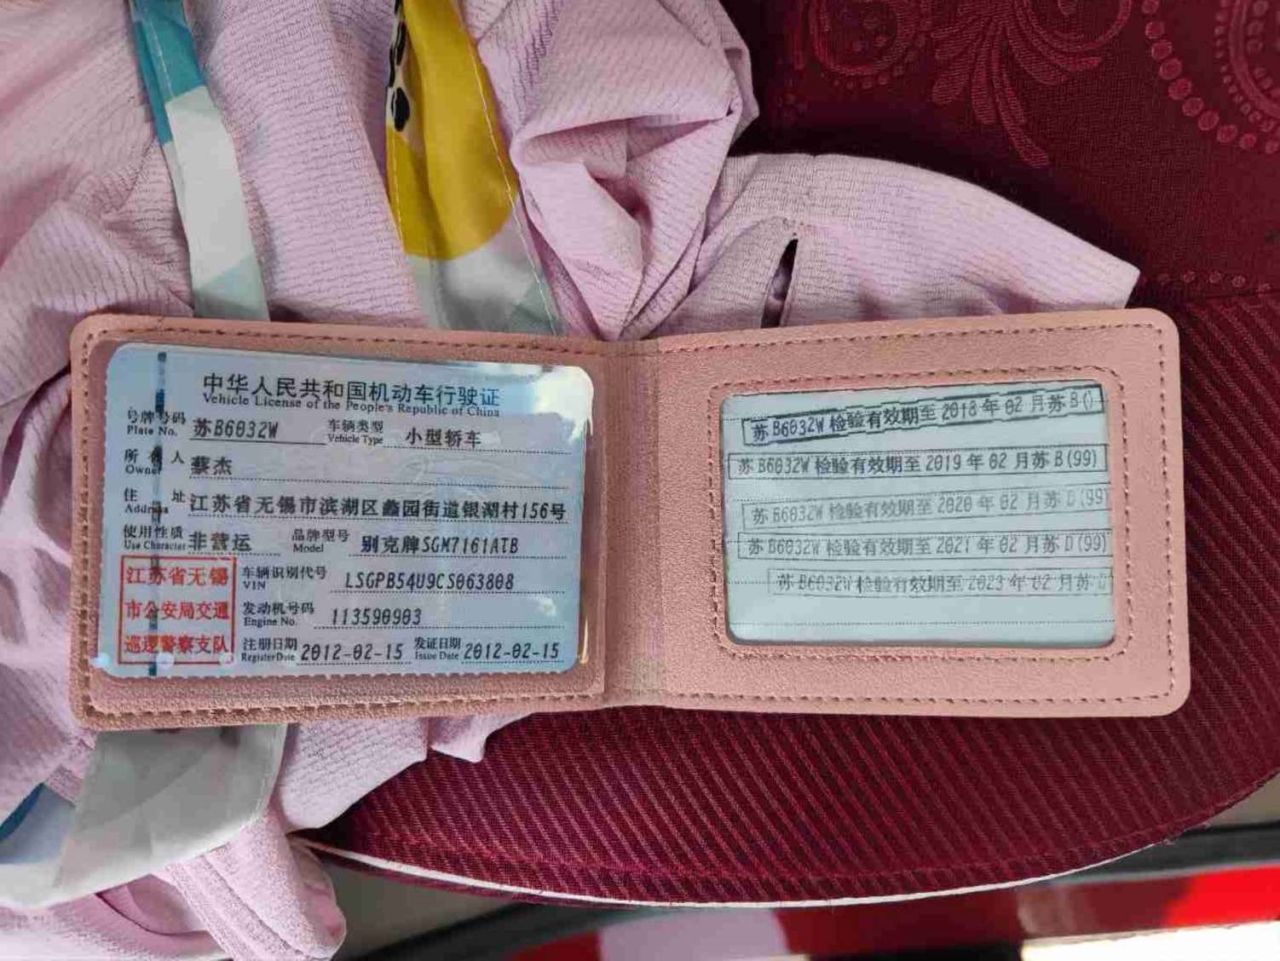 中华人民共和国机动车行驶证
Vehicle License of the People's Republic of China
号牌号码 苏B6032W 车辆类型 小型轿车
Plate No. Vehicle Type
所有人 蔡杰
Owner
住址 江苏省无锡市滨湖区蠡园街道银湖村156号
Address
使用性质 非营运 品牌型号 别克牌SGM7161ATB
Use Character Model
江苏省无锡
市公安局交通
巡逻警察支队
车辆识别代号 LSGPB54U9CS063808
VIN
发动机号码 113590903
Engine No.
注册日期 2012-02-15 发证日期 2012-02-15
Register Date Issue Date
苏B6032W 检验有效期至 2018 年 02 月苏B()
苏B6032W 检验有效期至 2019 年 02 月苏B(99)
苏B6032W 检验有效期至 2020 年 02 月苏D(99)
苏B6032W 检验有效期至 2021 年 02 月苏D(99)
苏B6032W 检验有效期至 2023 年 02 月苏